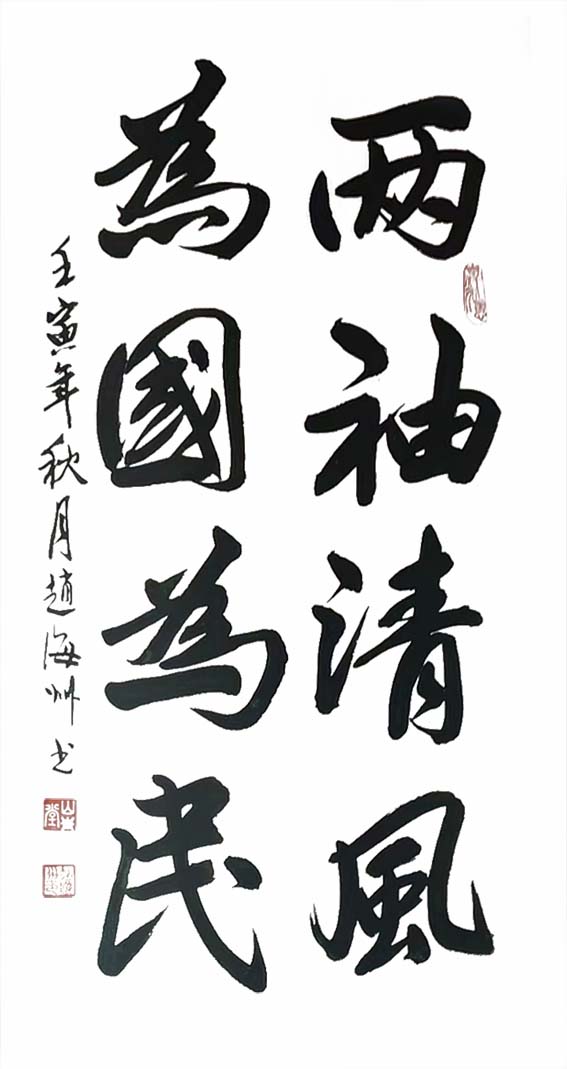 两袖清風
為國為民
壬寅年秋月趙海艸书